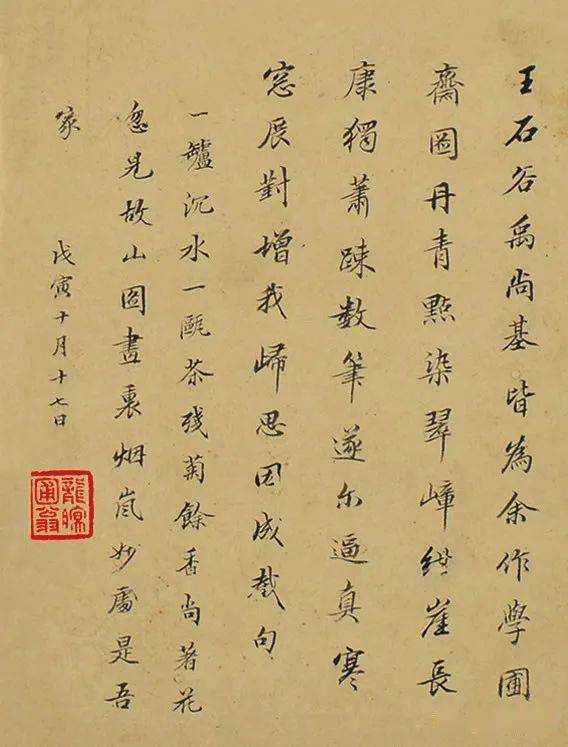 王石谷禹尚基皆為余作學圃
齋圖丹青點染翠嶂崖長
康獨蕭疎數筆遂尔逼真寒
窓展對增我歸思因成截句
一罏沉水一甌茶残菊餘香尚著花
忽見故山圖畫裏烟嵐妙處是吾
家
戊寅十月十七日
龍眠
圃翁